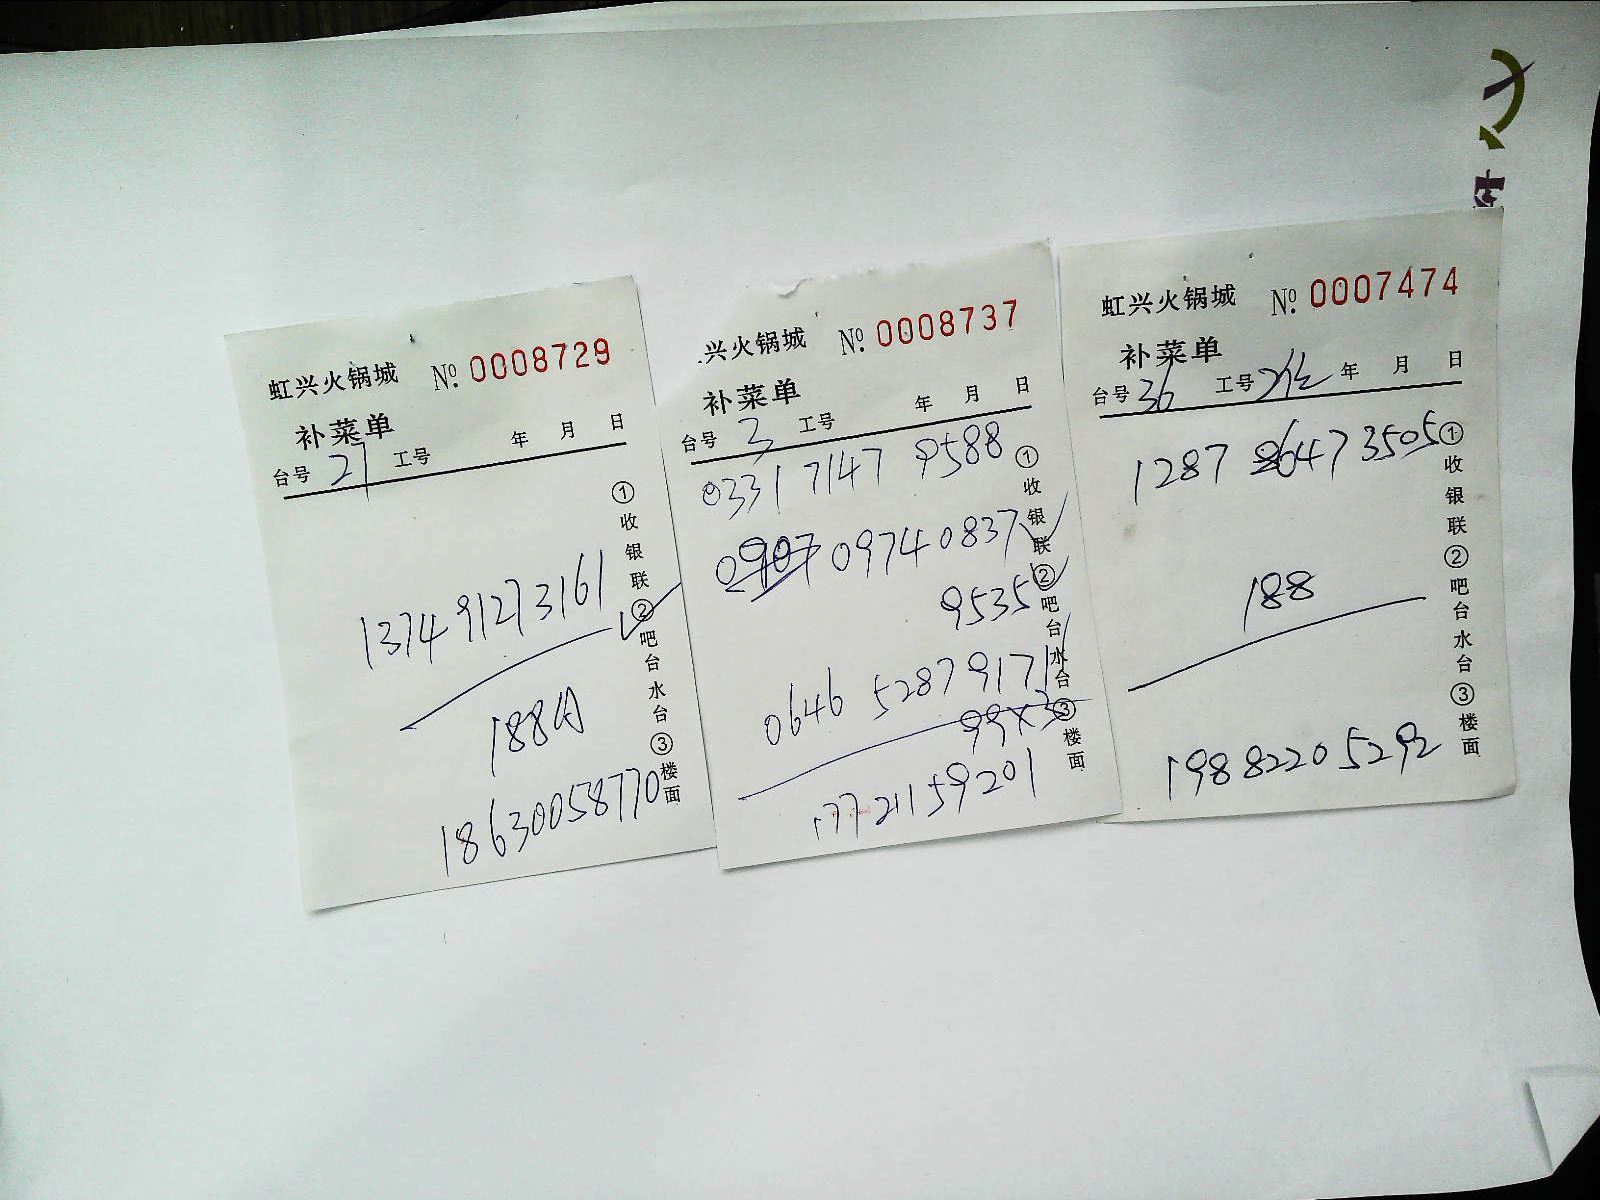 虹兴火锅城 № 0008729
补菜单
台号 27 工号 年 月 日
137491273161
188
18630058770
①收银联②吧台水台③楼面
兴火锅城 № 0008737
补菜单
台号 3 工号 年 月 日
0331 7147 9588
09740837
9535
0646 5287 9171
99×3
17721159201
①收银联②吧台水台③楼面
虹兴火锅城 № 0007474
补菜单
台号 36 工号 年 月 日
1287 8647 3505
188
19882205292
①收银联②吧台水台③楼面